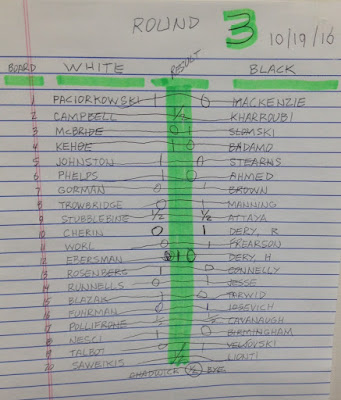 ROUND 3 10/19/16
BOARD WHITE RESULT BLACK
1 PACIORKOWSKI 1 0 MACKENZIE
2 CAMPBELL 1/2 KHARROUBI
3 McBRIDE 0 1 SLOMSKI
4 KEHOE 1 0 BADAMO
5 JOHNSTON 1 0 STEARNS
6 PHELPS 1 0 AHMED
7 GORMAN 0 1 BROWN
8 TROWBRIDGE 0 1 MANNING
9 STUBBLEBINE 1/2 1/2 ATTAYA
10 CHERIN 0 1 DERY, R
11 WORL 0 1 PREARSON
12 EBERSMAN 1 0 DERY, H
13 ROSENBERG 1 0 CONNELLY
14 RUNNELLS 0 1 JESSE
15 BLAZAK 1 0 TARWID
16 FUHRMAN 0 1 JOSEVICH
17 POLLIFRONE 1/2 1/2 CAVANAUGH
18 NESCI 1 0 BIRMINGHAM
19 TALBOT 1
20 SAWEIKIS LIONTI
CHADWICK BYE